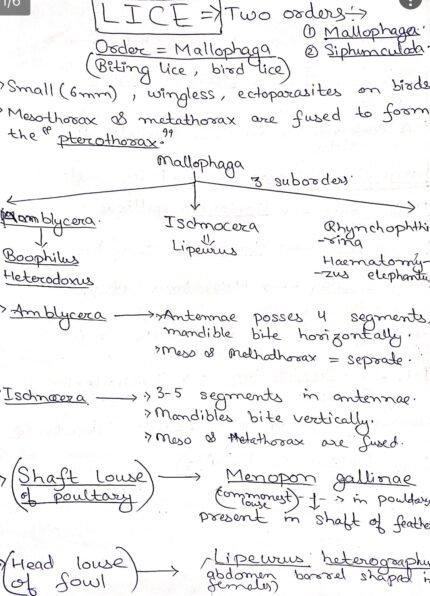 1/6
LICE => Two orders:->
① Mallophaga.
② Siphunculata.
Order = Mallophaga
(Biting lice, bird lice)
> Small (6mm), wingless, ectoparasites on birds
> Mesothorax & metathorax are fused to form
the "pterothorax."
Mallophaga
3 suborders.
Amblycera.
Ischnocera
Rhynchophthi
-rina
Boophilus
Heterodoxus
Lipeurus
Haematomy-
-zus elephanti
> Amblycera → > Antennae posses 4 segments.
mandible bite horizontally.
> Meso & Methathorax = seprate.
> Ischnocera → > 3-5 segments in antennae.
> Mandibles bite vertically.
> Meso & Metathorax are fused.
> (Shaft louse of poultary) → Menopon gallinae
(commonest louse) → in poultary
present in shaft of feathe
> (Head louse of fowl) → Lipeurus heterography
abdomen barrel shaped in
females)